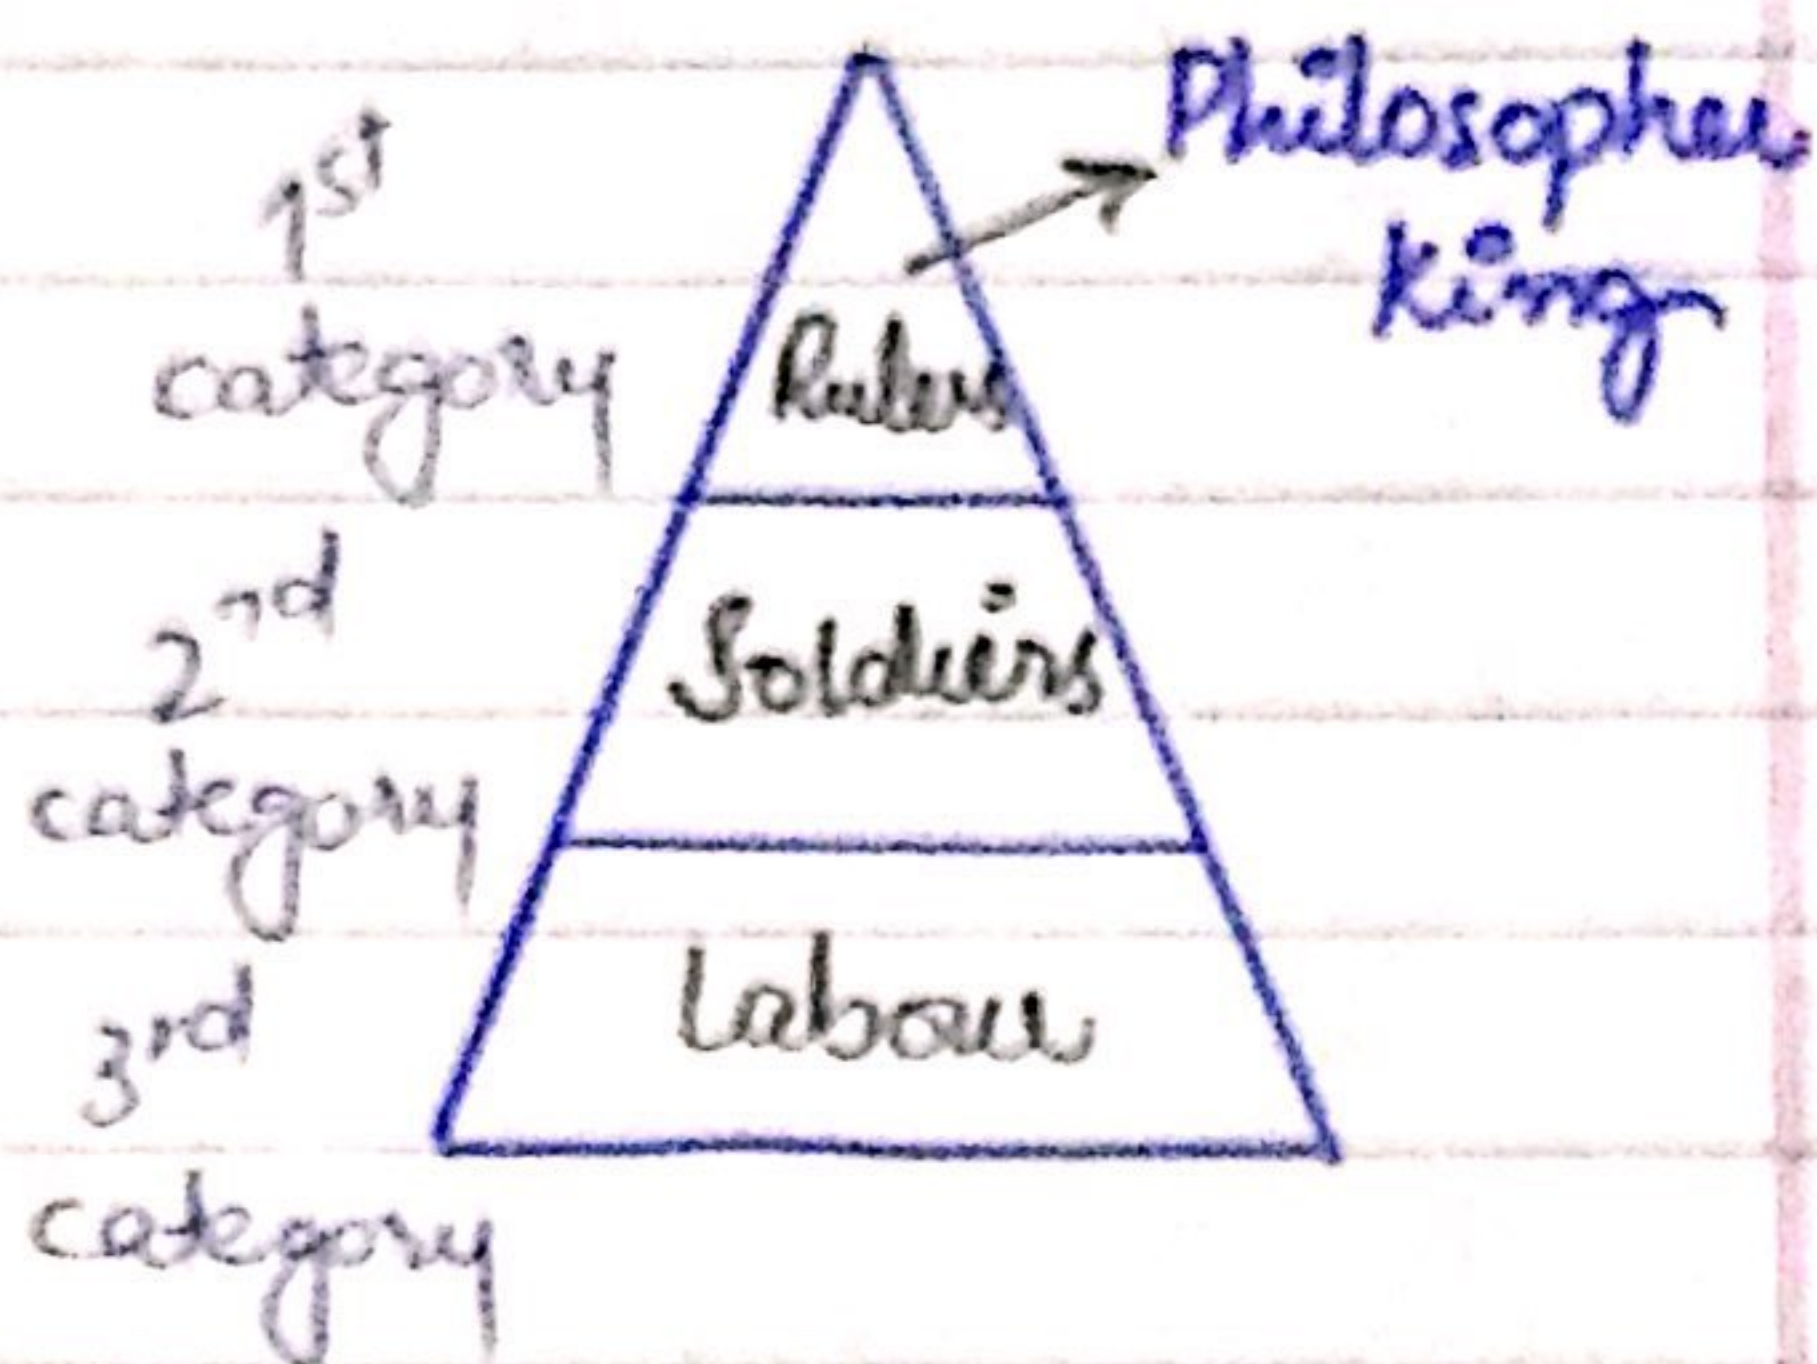 1st
category
Philosopher
King
Rulers
2nd
category
Soldiers
3rd
category
Labour